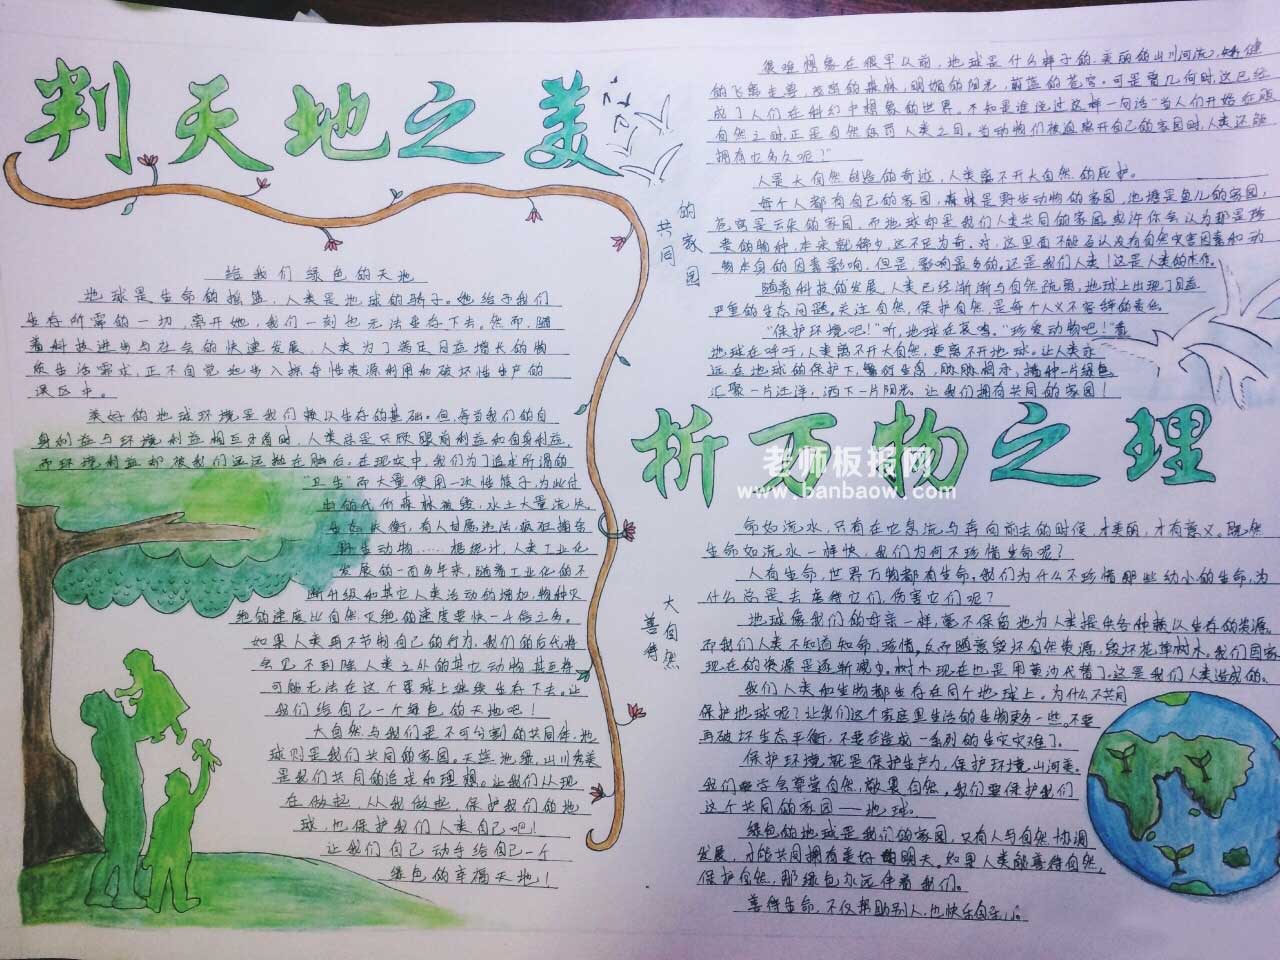 判天地之美
给我们绿色的天地
地球是生命的摇篮，人类是地球的骄子。她给予我们
生存所需的一切，离开她，我们一刻也无法生存下去。然而，随
着科技进步与社会的快速发展，人类为了满足日益增长的物
质生活需求，正不自觉地步入掠夺性资源利用和破坏性生产的
误区中。
美好的地球环境是我们赖以生存的基础。但，每当我们的自
身利益与环境利益相互矛盾时，人类总是只顾眼前利益和自身利益，
而环境利益却被我们远远抛在脑后。在现实中，我们为了追求所谓的
“卫生”而大量使用一次性筷子，为此付
出的代价森林被毁，水土大量流失，
生态失衡，有人甘属违法，疯狂捕杀
野生动物……据统计，人类工业化
发展的一百多年来，随着工业化的不
断升级和其它人类活动的增加，物种灭
绝的速度比自然灭绝的速度要快一千倍之多。
如果人类再不节制自己的行为，我们的后代将
会见不到除人类之外的其它动物，甚至有
可能无法在这个星球上继续生存下去。让
我们给自己一个绿色的天地吧！
大自然与我们是不可分割的共同体，地
球则是我们共同的家园。天蓝地绿，山川秀美
是我们共同的追求和理想。让我们从现
在做起，从我做起，保护我们的地
球，也保护我们人类自己吧！
让我们自己动手给自己一个
绿色的幸福天地！
共同
的家园
很难想象在很早以前，地球是什么样子的，美丽的山川河流，矫健
的飞禽走兽，茂密的森林，明媚的阳光，蔚蓝的苍穹。可是曾几何时，这已经
成了人们在科幻中想象的世界。不知是谁说过这样一句话“当人们开始征服
自然之时，正是自然惩罚人类之日。当动物们被迫离开自己的家园时，人类还能
拥有它多久呢？”
人是大自然创造的奇迹，人类离不开大自然的庇护。
每个人都有自己的家园，森林是野生动物的家园，池塘是鱼儿的家园，
苍穹是云朵的家园，而地球却是我们人类共同的家园。或许你会认为那是珍
贵的物种，本来就稀少，这不足为奇。对，这里面不能否认没有自然灾害因素和动
物本身的因素影响，但是，影响最多的，还是我们人类！这是人类的杰作。
随着科技的发展，人类已经渐渐与自然疏离，地球上出现了日益
严重的生态问题。关注自然，保护自然，是每个人义不容辞的责任。
“保护环境吧！”听，地球在哀鸣，“珍爱动物吧！”看，
地球在呼吁，人类离不开大自然，更离不开地球。让人类永
远在地球的保护下，繁衍生息，脉脉相承，播种一片绿色，
汇聚一片汪洋，洒下一片阳光。让我们拥有共同的家园！
析万物之理
老师板报网
www.banbaow.com
善待
大自然
命如流水，只有在它急流与奔向前去的时候，才美丽，才有意义。既然
生命如流水一样快，我们为何不珍惜生命呢？
人有生命，世界万物都有生命。我们为什么不珍惜那些幼小的生命，为
什么总是去虐待它们，伤害它们呢？
地球像我们的母亲一样，毫不保留地为人类提供各种赖以生存的资源。
而我们人类不知道知命，珍惜。反而随意毁坏自然资源，毁坏花草树木。我们国家
现在的资源是逐渐减少。树木现在也是用黄沙代替了。这是我们人类造成的。
我们人类和生物都生存在同个地球上。为什么不共同
保护地球呢？让我们这个家庭里生活的生物更多一些。不要
再破坏生态平衡，不要在造成一系列的生灾灾难了。
保护环境就是保护生产力，保护环境，山河美。
我们要学会尊崇自然，敬畏自然，我们要保护我们
这个共同的家园——地球。
绿色的地球是我们的家园，只有人与自然协调
发展，才能共同拥有美好的明天。如果人类能善待自然，
保护自然，那绿色永远伴着我们。
善待生命，不仅帮助别人，也快乐自己